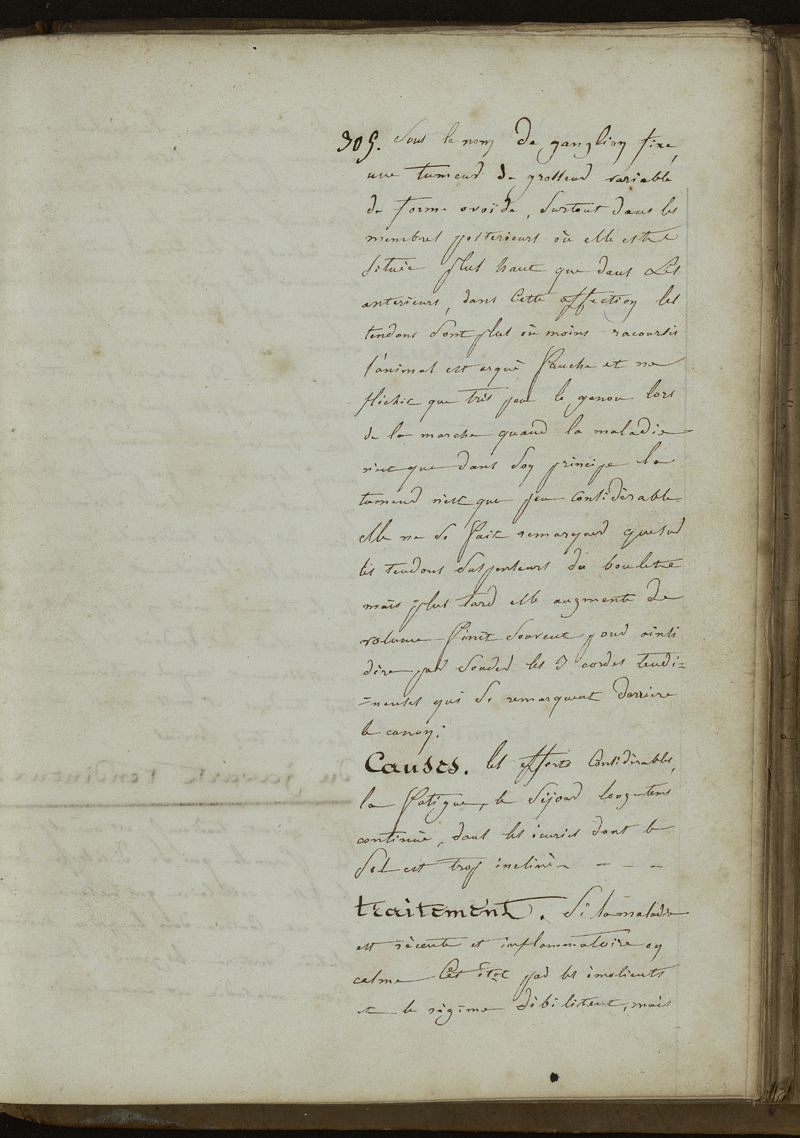 305. Sous le nom De ganglion fixe,
une tumeur de grosseur variable
de forme ovoïde, Surtout dans les
membres posterieurs où elle est
située plus haut que dans Les
anterieurs, dans Cette affection les
tendons Sont plus ou moins racoursis
l'animal est arqué Bauche et ne
fléchit que très peu le genou lors
de la marche quand la maladie
n'est que dans Son principe la
tumeur n'est que peu Considèrable
elle ne Se fait remarquer que sur
les tendons Suspenseurs du boulette
mais plus tard elle augmente de
volume finit Souvent pour ainsi
dire par Souder les 3 cordes tendi=
=neuses qui Se remarquent Derriere
le canon.
Causes. les efforts Considèrables,
la fatigue, le Sèjour long-tems
continuè, dans les ècuries dont le
Sol est trop inclinè - - - -
traitement. Si la maladie
est rècente et inflammatoire on
calme Cet ètat par les èmolients
et le règime Dèbilitent, mais